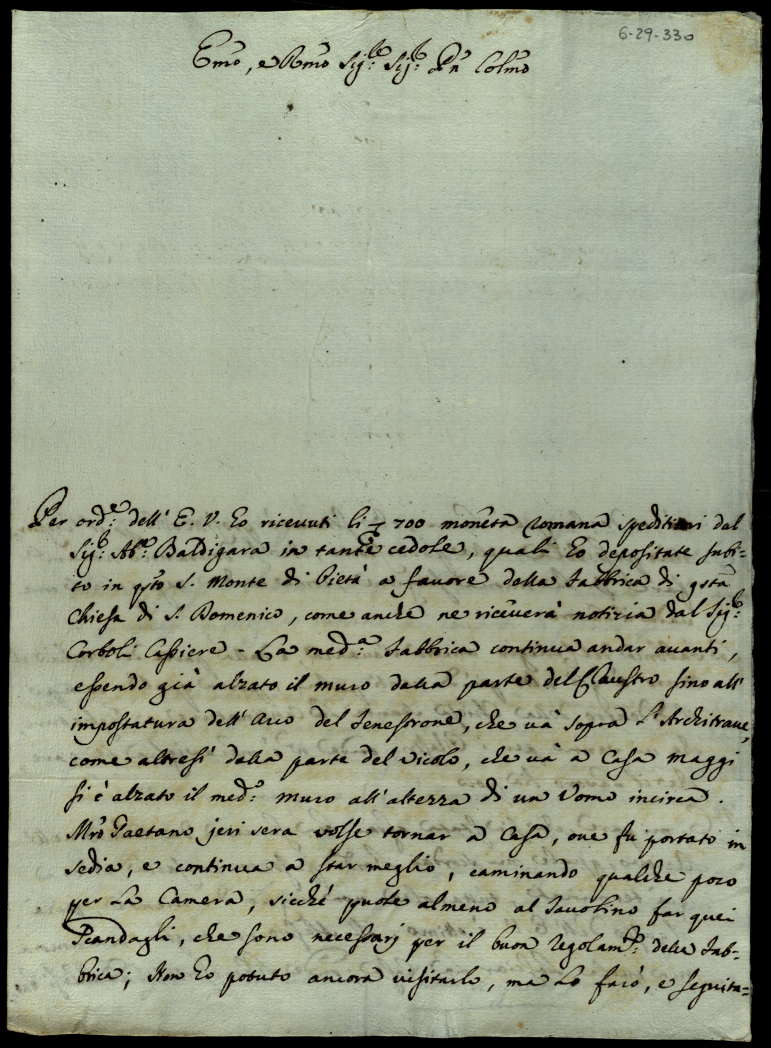 6-29-330
Emo, e Rmo Sig.re Sig.re Pñ Colmo
Per ord.e dell' E. V. ho ricevuti li 700 moneta romana speditimi dal
Sig.r Ab.e Baldigara in tante cedole, quali ho depositate subi=
to in qsto S. Monte di Pietà a favore della Fabbrica di qsta
Chiesa di S. Domenico, come anche ne riceverà notizia dal Sig.r
Corboli Cassiere - La med.a Fabbrica continua andar avanti,
essendo già alzato il muro dalla parte del Claustro sino all'
impostatura dell' Arco del Fenestrone, che và sopra l'Architrave,
come altresi' dalla parte del vicolo, che và a Casa Maggi
si è alzato il med.o muro all'altezza di un Uomo incirca.
Mro Gaetano jeri sera volse tornar a Casa, ove fu portato in
sedia, e continua a star meglio, caminando qualche poco
per la Camera, sicché puole almeno al Tavolino far quei
Scandagli, che sono necessarj per il buon regolam.to della Fab=
brica; Non ho potuto ancora visitarlo, ma lo farò, e seguita=